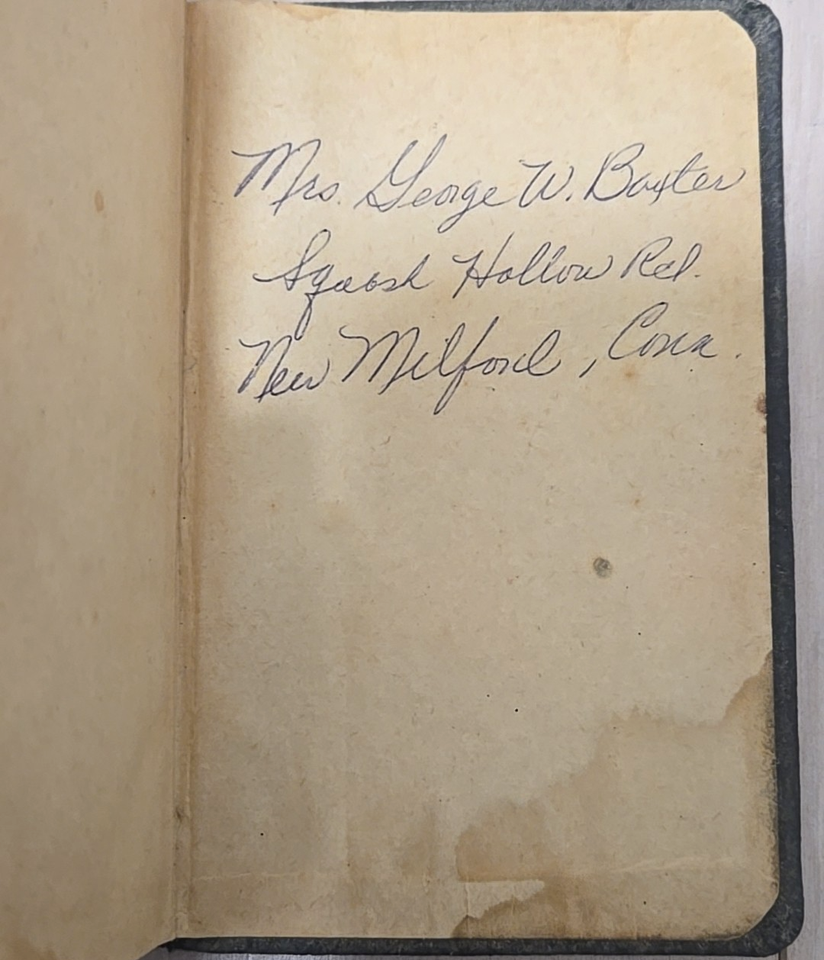 Mrs. George W. Baxter
Squash Hollow Rd.
New Milford, Conn.